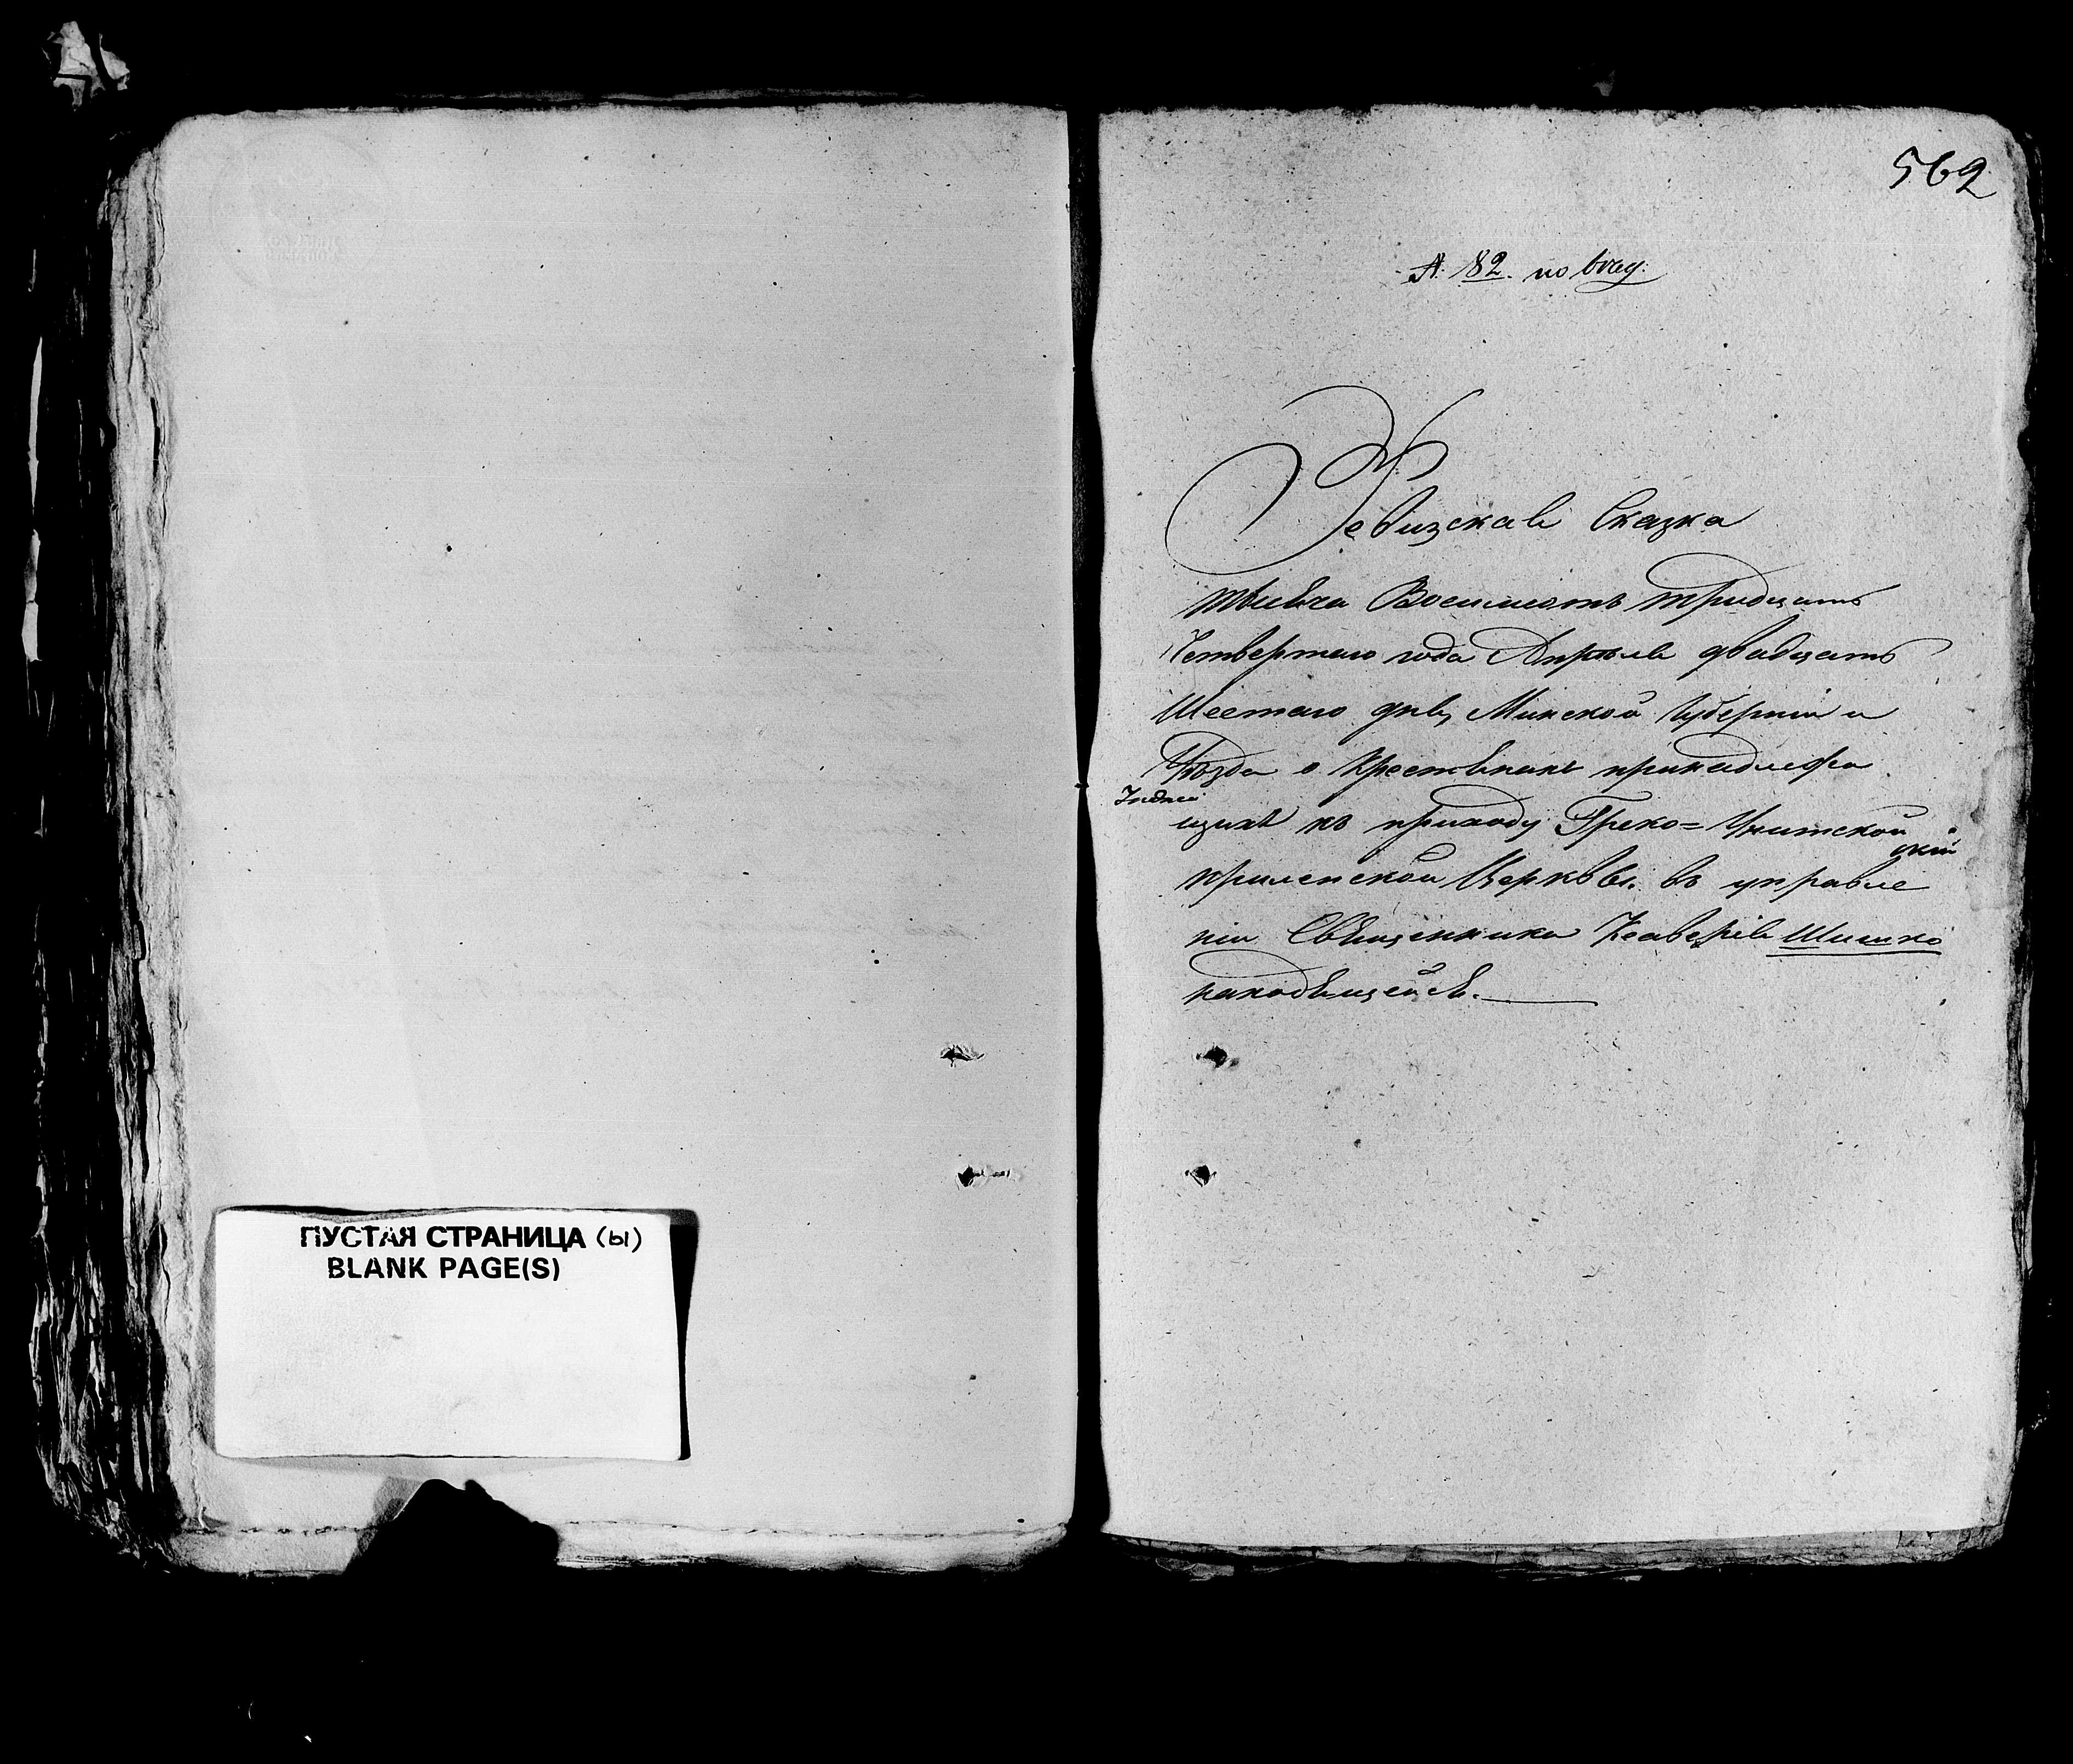 ПУСТАЯ СТРАНИЦА (ы)
BLANK PAGE(S)
562
№ 82 по
Ревизская Сказка
тысяча Восемьсотъ тридцать
Четвертаго года Апрѣля двадцать
Шестаго дня, Минской Губерніи и
Уѣзда о Крестьянахъ принадлежа
щихъ къ приходу Греко=Унитской
Церквы. въ управле
ніи Священника Ксаверія Шишко
находящейся.